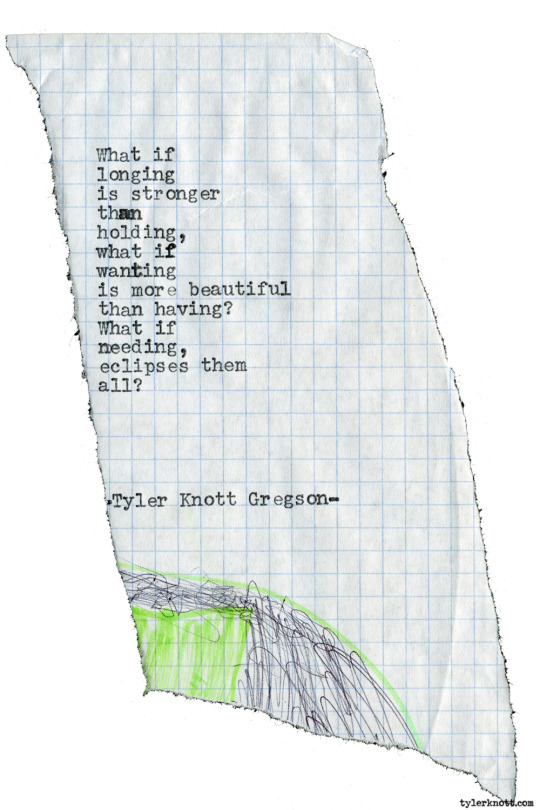 What if
longing
is stronger
than
holding,
what if
wanting
is more beautiful
than having?
What if
needing,
eclipses them
all?
-Tyler Knott Gregson-
tylerknott.com